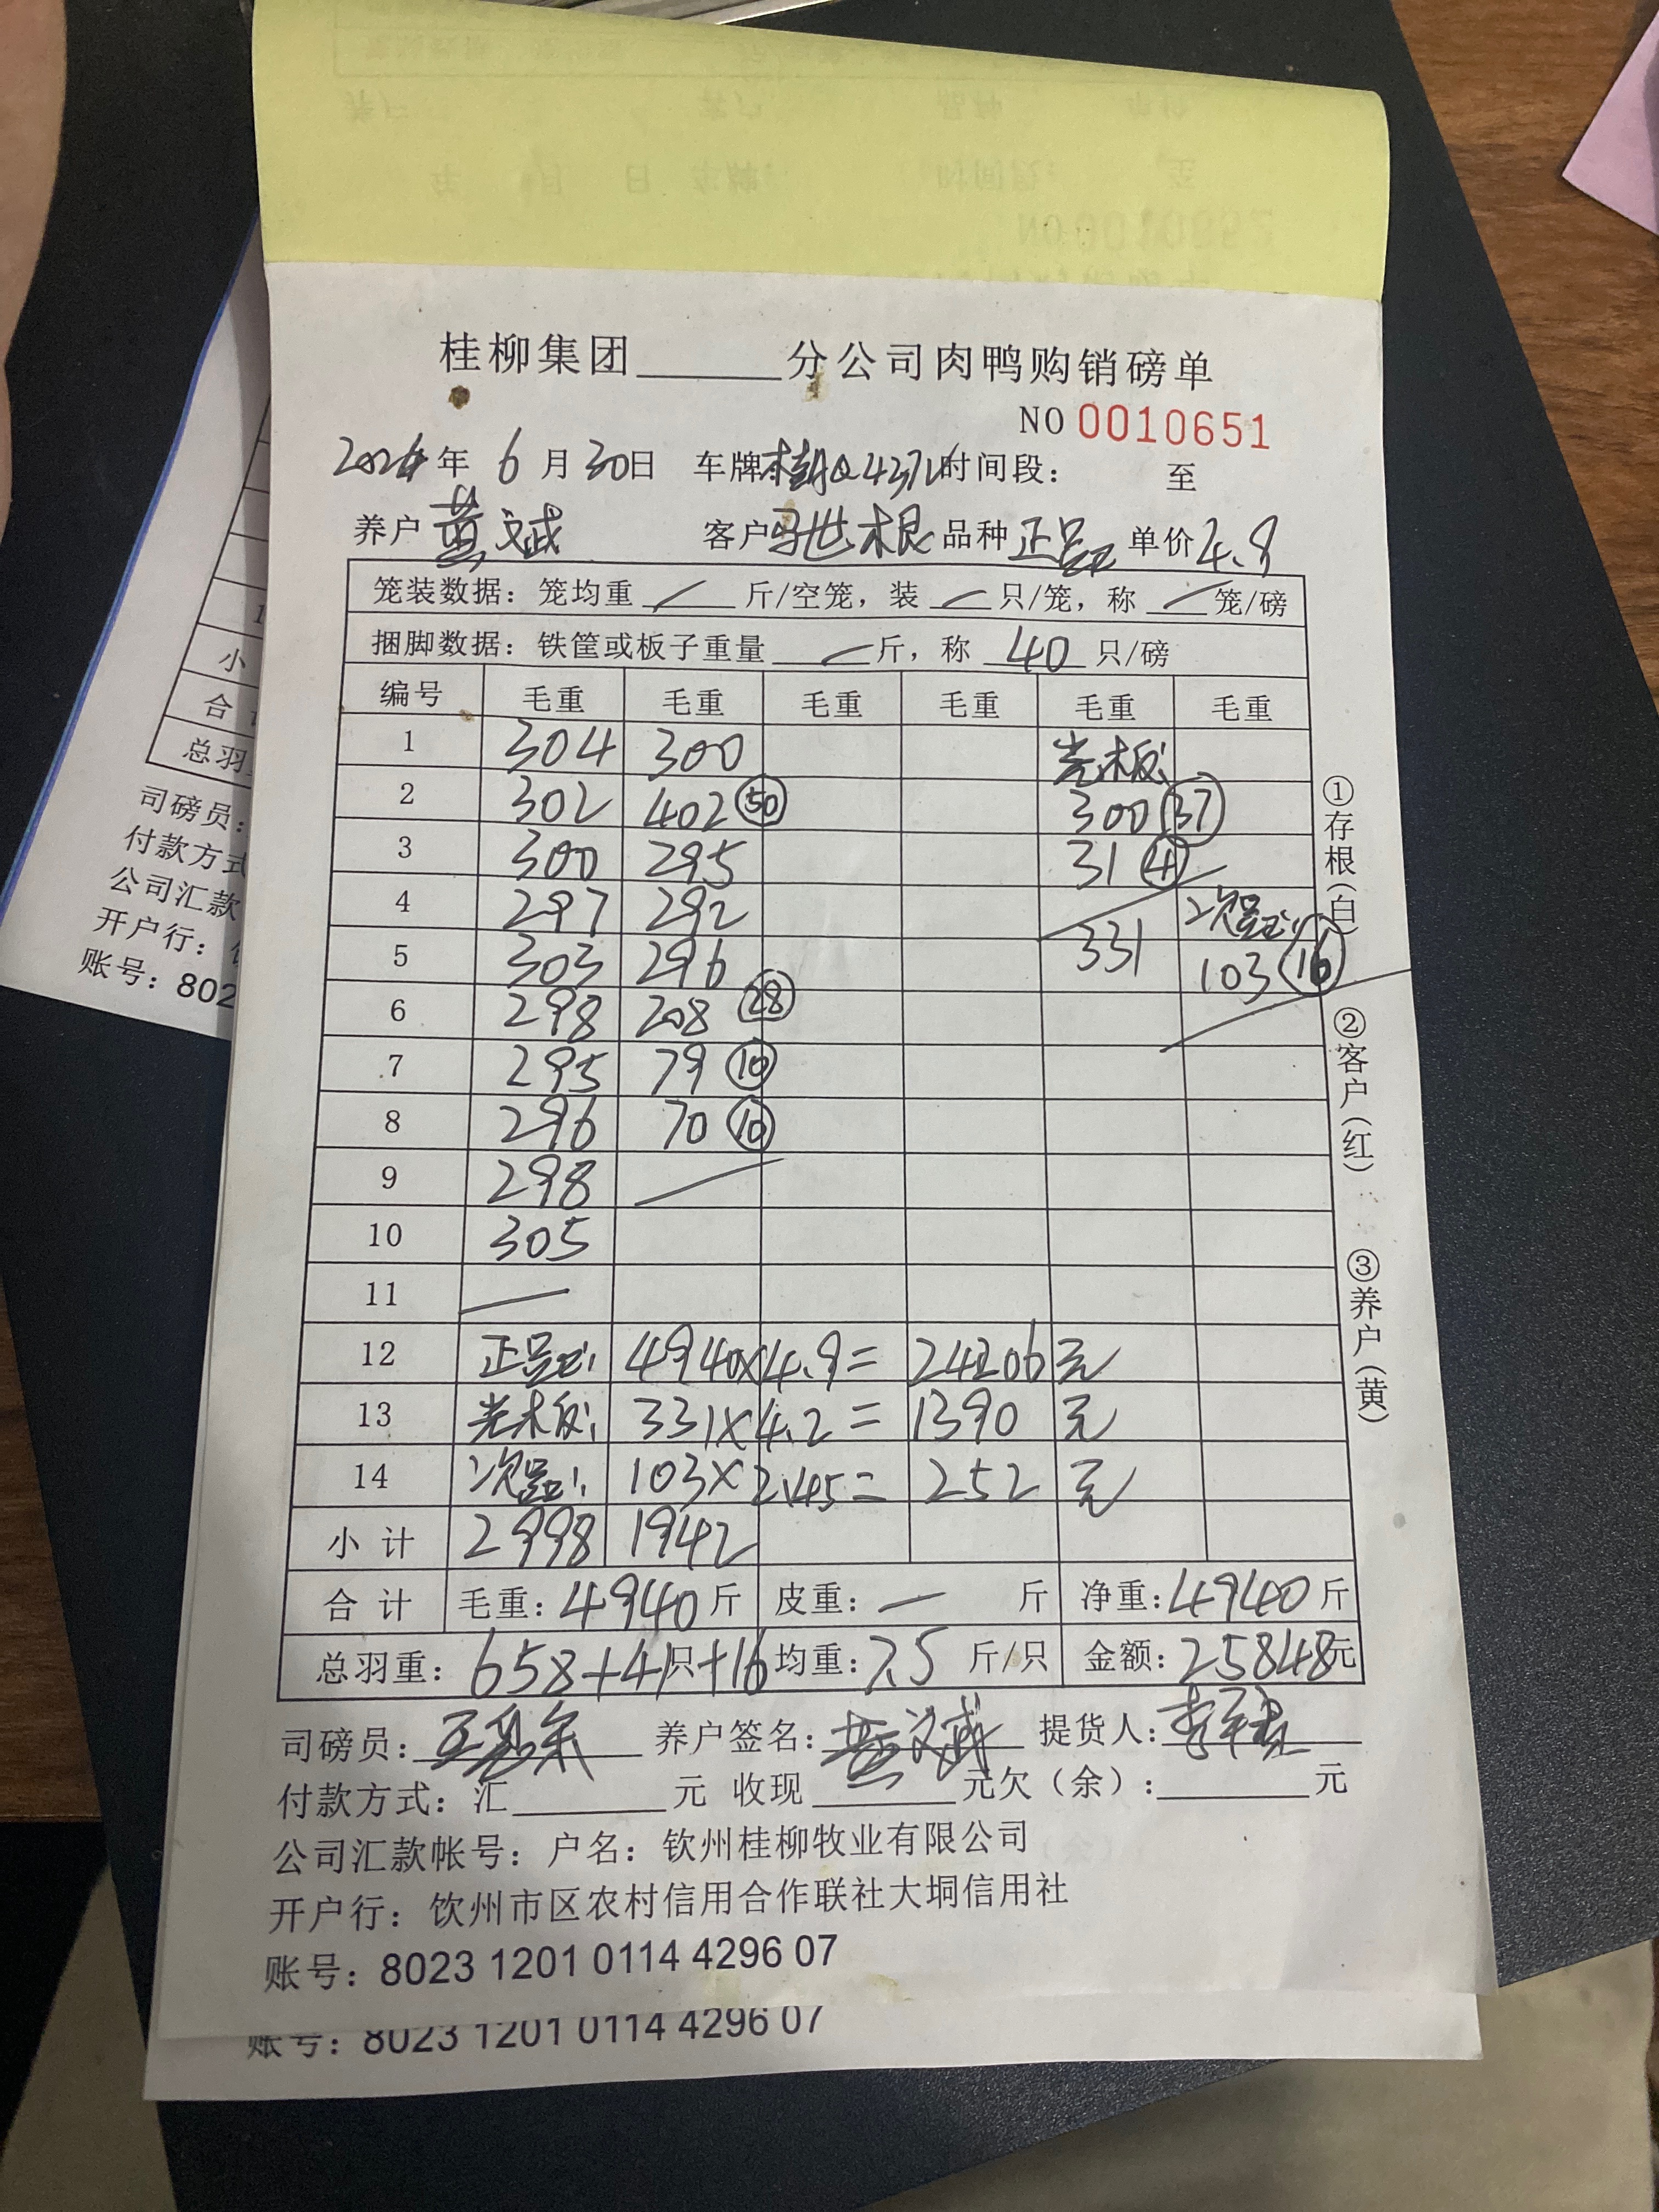 桂柳集团______分公司肉鸭购销磅单
NO 0010651
2024年 6月30日 车牌 时间段: 至
养户 黄文斌 客户 世根 品种 正品 单价 4.9
笼装数据：笼均重 / 斤/空笼，装 / 只/笼，称 / 笼/磅
捆脚数据：铁筐或板子重量 / 斤，称 40 只/磅
编号 毛重 毛重 毛重 毛重 毛重 毛重
1 304 300 光板:
2 302 402 50 300 37
3 300 295 31 4
4 297 292 次品:
5 303 296 331 103 16
6 298 208 28
7 295 79 10
8 296 70 10
9 298
10 305
11
12 正品: 4940×4.9= 24206元
13 光板: 331×4.2= 1390元
14 次品: 103×2.45= 252元
小计 2998 1942
合计 毛重：4940斤 皮重：— 斤 净重：4940斤
总羽重：658+41只+16 均重：7.5 斤/只 金额：25848元
司磅员： 养户签名：黄文斌 提货人：
付款方式：汇______元 收现______元欠（余）：______元
公司汇款帐号：户名：钦州桂柳牧业有限公司
开户行：钦州市区农村信用合作联社大垌信用社
账号：8023 1201 0114 4296 07
账号：8023 1201 0114 4296 07
①存根（白） ②客户（红） ③养户（黄）
小
合
总羽
司磅员：
付款方式
公司汇款
开户行：
账号：802